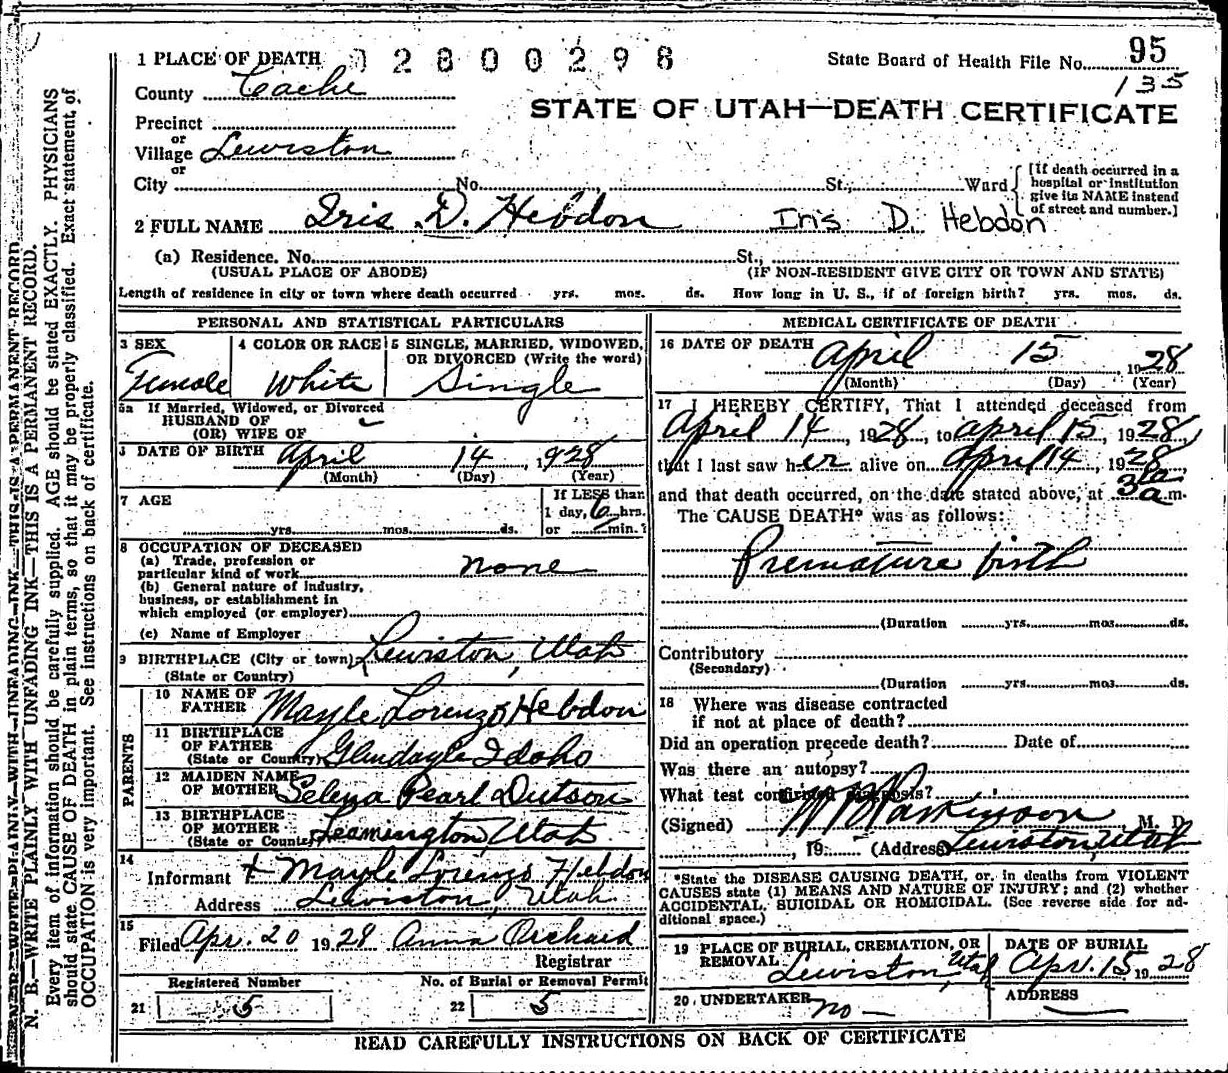 1 PLACE OF DEATH 02800298 State Board of Health File No. 95
135
County Cache
STATE OF UTAH—DEATH CERTIFICATE
Precinct
or
Village Lewiston
or
City No. St., Ward [If death occurred in a hospital or institution give its NAME instead of street and number.]
2 FULL NAME Iris D. Hebdon Iris D. Hebdon
(a) Residence. No. St.,
(USUAL PLACE OF ABODE) (IF NON-RESIDENT GIVE CITY OR TOWN AND STATE)
Length of residence in city or town where death occurred yrs. mos. ds. How long in U. S., if of foreign birth? yrs. mos. ds.
PERSONAL AND STATISTICAL PARTICULARS
3 SEX Female
4 COLOR OR RACE White
5 SINGLE, MARRIED, WIDOWED, OR DIVORCED (Write the word) Single
5a If Married, Widowed, or Divorced
HUSBAND OF
(OR) WIFE OF
DATE OF BIRTH April 14, 1928
(Month) (Day) (Year)
7 AGE yrs. mos. ds.
If LESS than
1 day, 6 hrs.
or min.?
8 OCCUPATION OF DECEASED
(a) Trade, profession or
particular kind of work none
(b) General nature of industry,
business, or establishment in
which employed (or employer)
(c) Name of Employer
9 BIRTHPLACE (City or town) Lewiston, Utah
(State or Country)
PARENTS
10 NAME OF FATHER Mayle Lorenzo Hebdon
11 BIRTHPLACE OF FATHER Glendayle Idaho
(State or Country)
12 MAIDEN NAME OF MOTHER Selena Pearl Dutson
13 BIRTHPLACE OF MOTHER Leamington, Utah
(State or Country)
14
Informant + Mayle Lorenzo Hebdon
Address Lewiston, Utah
15
Filed Apr. 20 1928 Anna Orchard
Registrar
Registered Number No. of Burial or Removal Permit
21 5 22 5
MEDICAL CERTIFICATE OF DEATH
16 DATE OF DEATH April 15, 1928
(Month) (Day) (Year)
17 I HEREBY CERTIFY, That I attended deceased from
April 14, 1928, to April 15, 1928,
that I last saw her alive on April 14, 1928
and that death occurred, on the date stated above, at 3 a m.
The CAUSE DEATH* was as follows:
Premature birth
(Duration yrs. mos. ds.
Contributory
(Secondary)
(Duration yrs. mos. ds.
18 Where was disease contracted
if not at place of death?
Did an operation precede death? Date of
Was there an autopsy?
What test confirmed diagnosis?
(Signed) Parkinson M. D.
, 19 (Address Lewiston, Utah
*State the DISEASE CAUSING DEATH, or, in deaths from VIOLENT
CAUSES state (1) MEANS AND NATURE OF INJURY; and (2) whether
ACCIDENTAL, SUICIDAL OR HOMICIDAL. (See reverse side for ad-
ditional space.)
19 PLACE OF BURIAL, CREMATION, OR REMOVAL Lewiston, Utah
DATE OF BURIAL Apr. 15 1928
20 UNDERTAKER no
ADDRESS
READ CAREFULLY INSTRUCTIONS ON BACK OF CERTIFICATE
N. B.—WRITE PLAINLY WITH UNFADING INK—THIS IS A PERMANENT RECORD.
Every item of information should be carefully supplied. AGE should be stated EXACTLY. PHYSICIANS
should state CAUSE OF DEATH in plain terms, so that it may be properly classified. Exact statement of
OCCUPATION is very important. See instructions on back of certificate.